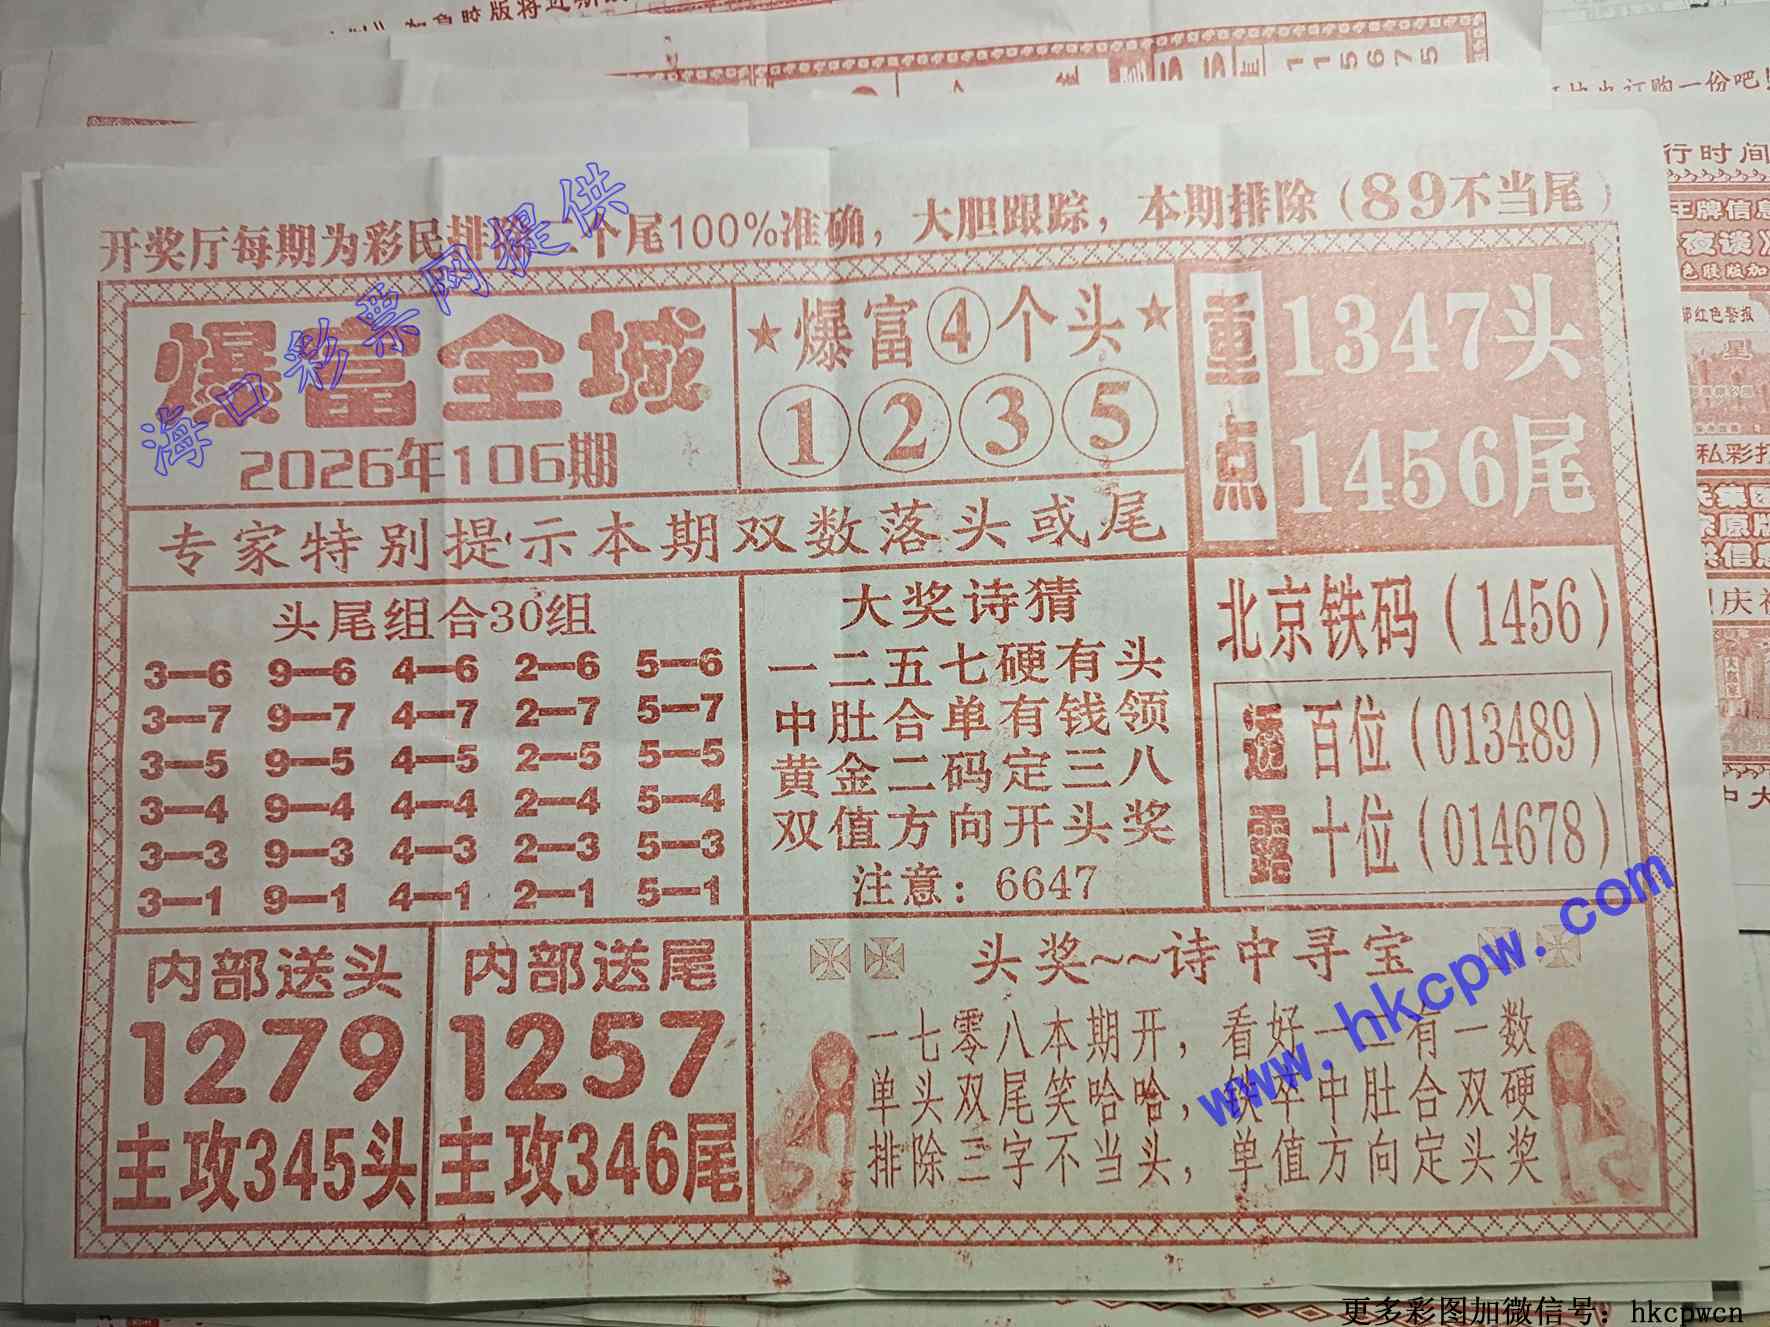 开奖厅每期为彩民排除二个尾100%准确，大胆跟踪，本期排除（89不当尾）
海口彩票网提供
爆富全城
2026年106期
★爆富④个头★
①②③⑤
重点
1347头
1456尾
专家特别提示本期双数落头或尾
头尾组合30组
3—6 9—6 4—6 2—6 5—6
3—7 9—7 4—7 2—7 5—7
3—5 9—5 4—5 2—5 5—5
3—4 9—4 4—4 2—4 5—4
3—3 9—3 4—3 2—3 5—3
3—1 9—1 4—1 2—1 5—1
大奖诗猜
一二五七硬有头
中肚合单有钱领
黄金二码定三八
双值方向开头奖
注意：6647
北京铁码（1456）
透露
百位（013489）
十位（014678）
内部送头
1279
主攻345头
内部送尾
1257
主攻346尾
头奖~~诗中寻宝
一七零八本期开，看好一二有一数
单头双尾笑哈哈，铁卒中肚合双硬
排除三字不当头，单值方向定头奖
www.hkcpw.com
更多彩图加微信号：hkcpwcn
115675
订购一份吧！
行时间
王牌信息
夜谈
色胶版加
部红色警报
私彩
大赢家